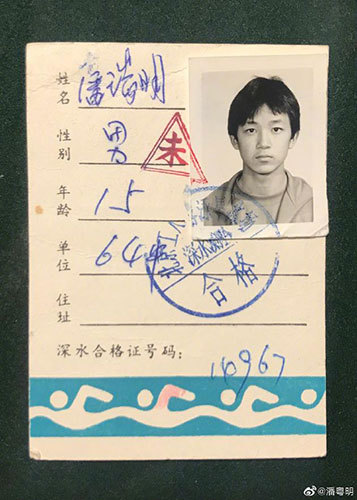 姓名 潘粤明
性别 男
年龄 15
单位 64中
住址
未
深水合格
深水合格证号码：
10967
@潘粤明